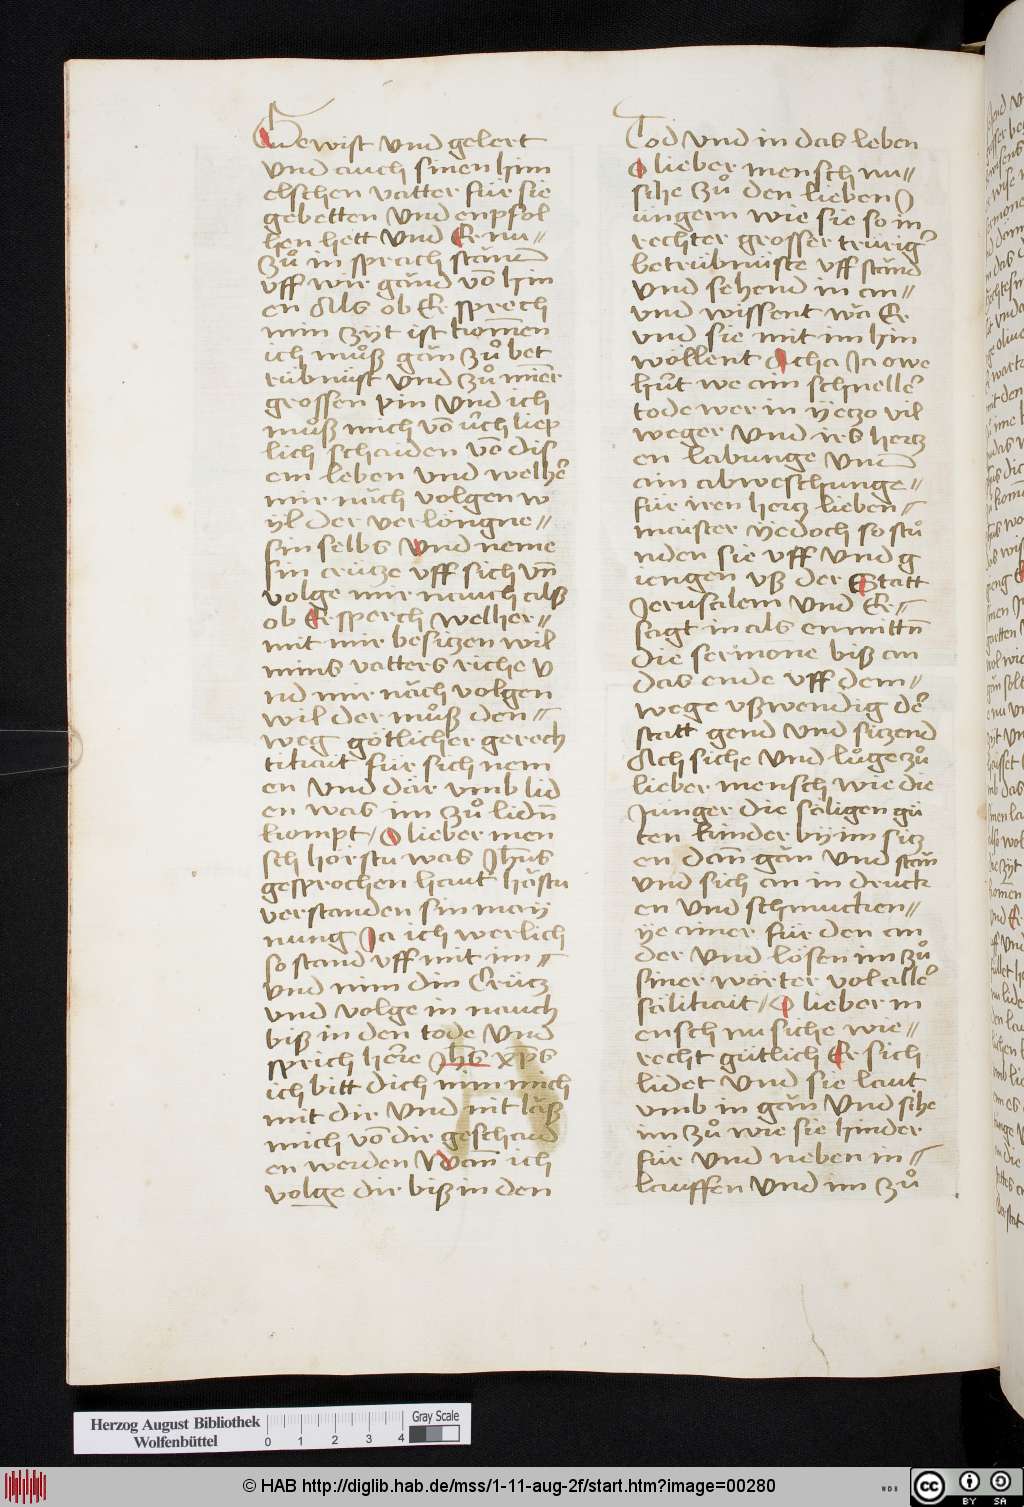 Gewist vnd gelert
vnd auch sinen him
elschen vatter für sie
gebetten vnd enpfol
hen hett vnd Er nu〃
zuͦ in sprach stānd
vff wir gănd võ hin
en Als ob Er sprech
min zyt ist kom̄en
ich muͦß găn zuͦ bet
rübnüst vnd zuͦ min̄er
grossen pin vnd ich
muͦß mich võ üch liep
lich schaiden võ dis
em leben vnd welher
mir năch volgen w
yl der verlöngne〃
sin selbs vnd neme
sin crütze vff sich vn̄
volge mir nauch alß
ob Er sperch welher〃
mit mir besitzen wil
mins vatters riche v
nd mir năch volgen
wil der muͦß den〃
weg götlicher gerech
tikait für sich nem
en vnd dăr vmb lid
en was im zuͦ lidn̄
kompt / O lieber men
sch hörstu was Jhūs
gesprochen haut hăstu
verstanden sin may
nung Ja ich werlich
so stand vff mit im〃
vnd nim din Crütz
vnd volge in nauch
biß in den tode vnd
sprich herre Jhs xps
ich bitt dich nim mich
mit dir vnd nit lăß
mich võ dir geschaid
en werden wan̄ ich
volge dir biß in den
Tod vnd in das leben
O lieber mensch nu〃
sihe zuͦ den lieben J
üngern wie sie so in
rechter grosser trurig
betrübnüste vff stănd
vnd sehend in an〃
vnd wissent wa Er
vnd sie mit im hin
wöllent Acha Ja owe
hüt we ain schneller
tode wer in yetzo vil
weger vnd irs hertz
en labunge vnd
ain abweschunge〃
für iren hertz lieben〃
maister yedoch so stuͦ
nden sie vff vnd g
iengen vß der Statt
Jerusalem vnd Er〃
sagt in als ermittn̄
die sermone biß an
das ende vff dem〃
wege vßwendig der
statt gend vnd sitzend
Ach siche vnd luͦge zuͦ
lieber mensch wie die
Jünger die săligen gü
ten kinder by im sitz
en dan̄ găn vnd stăn
vnd sich an in druck
en vnd schmucken〃
ye ainer für den an
der vnd lösen im zuͦ
siner worter vol aller
sälikait / O lieber m
ensch nu siche wie〃
recht gütlich Er sich
lidet vnd sie laut
vmb in găn vnd sihe
im zuͦ wie sie hinder
für vnd neben in〃
lauffen vnd im zuͦ
Herzog August Bibliothek
Wolfenbüttel
0 1 2 3 4
Gray Scale
© HAB http://diglib.hab.de/mss/1-11-aug-2f/start.htm?image=00280
WDB
cc BY SA